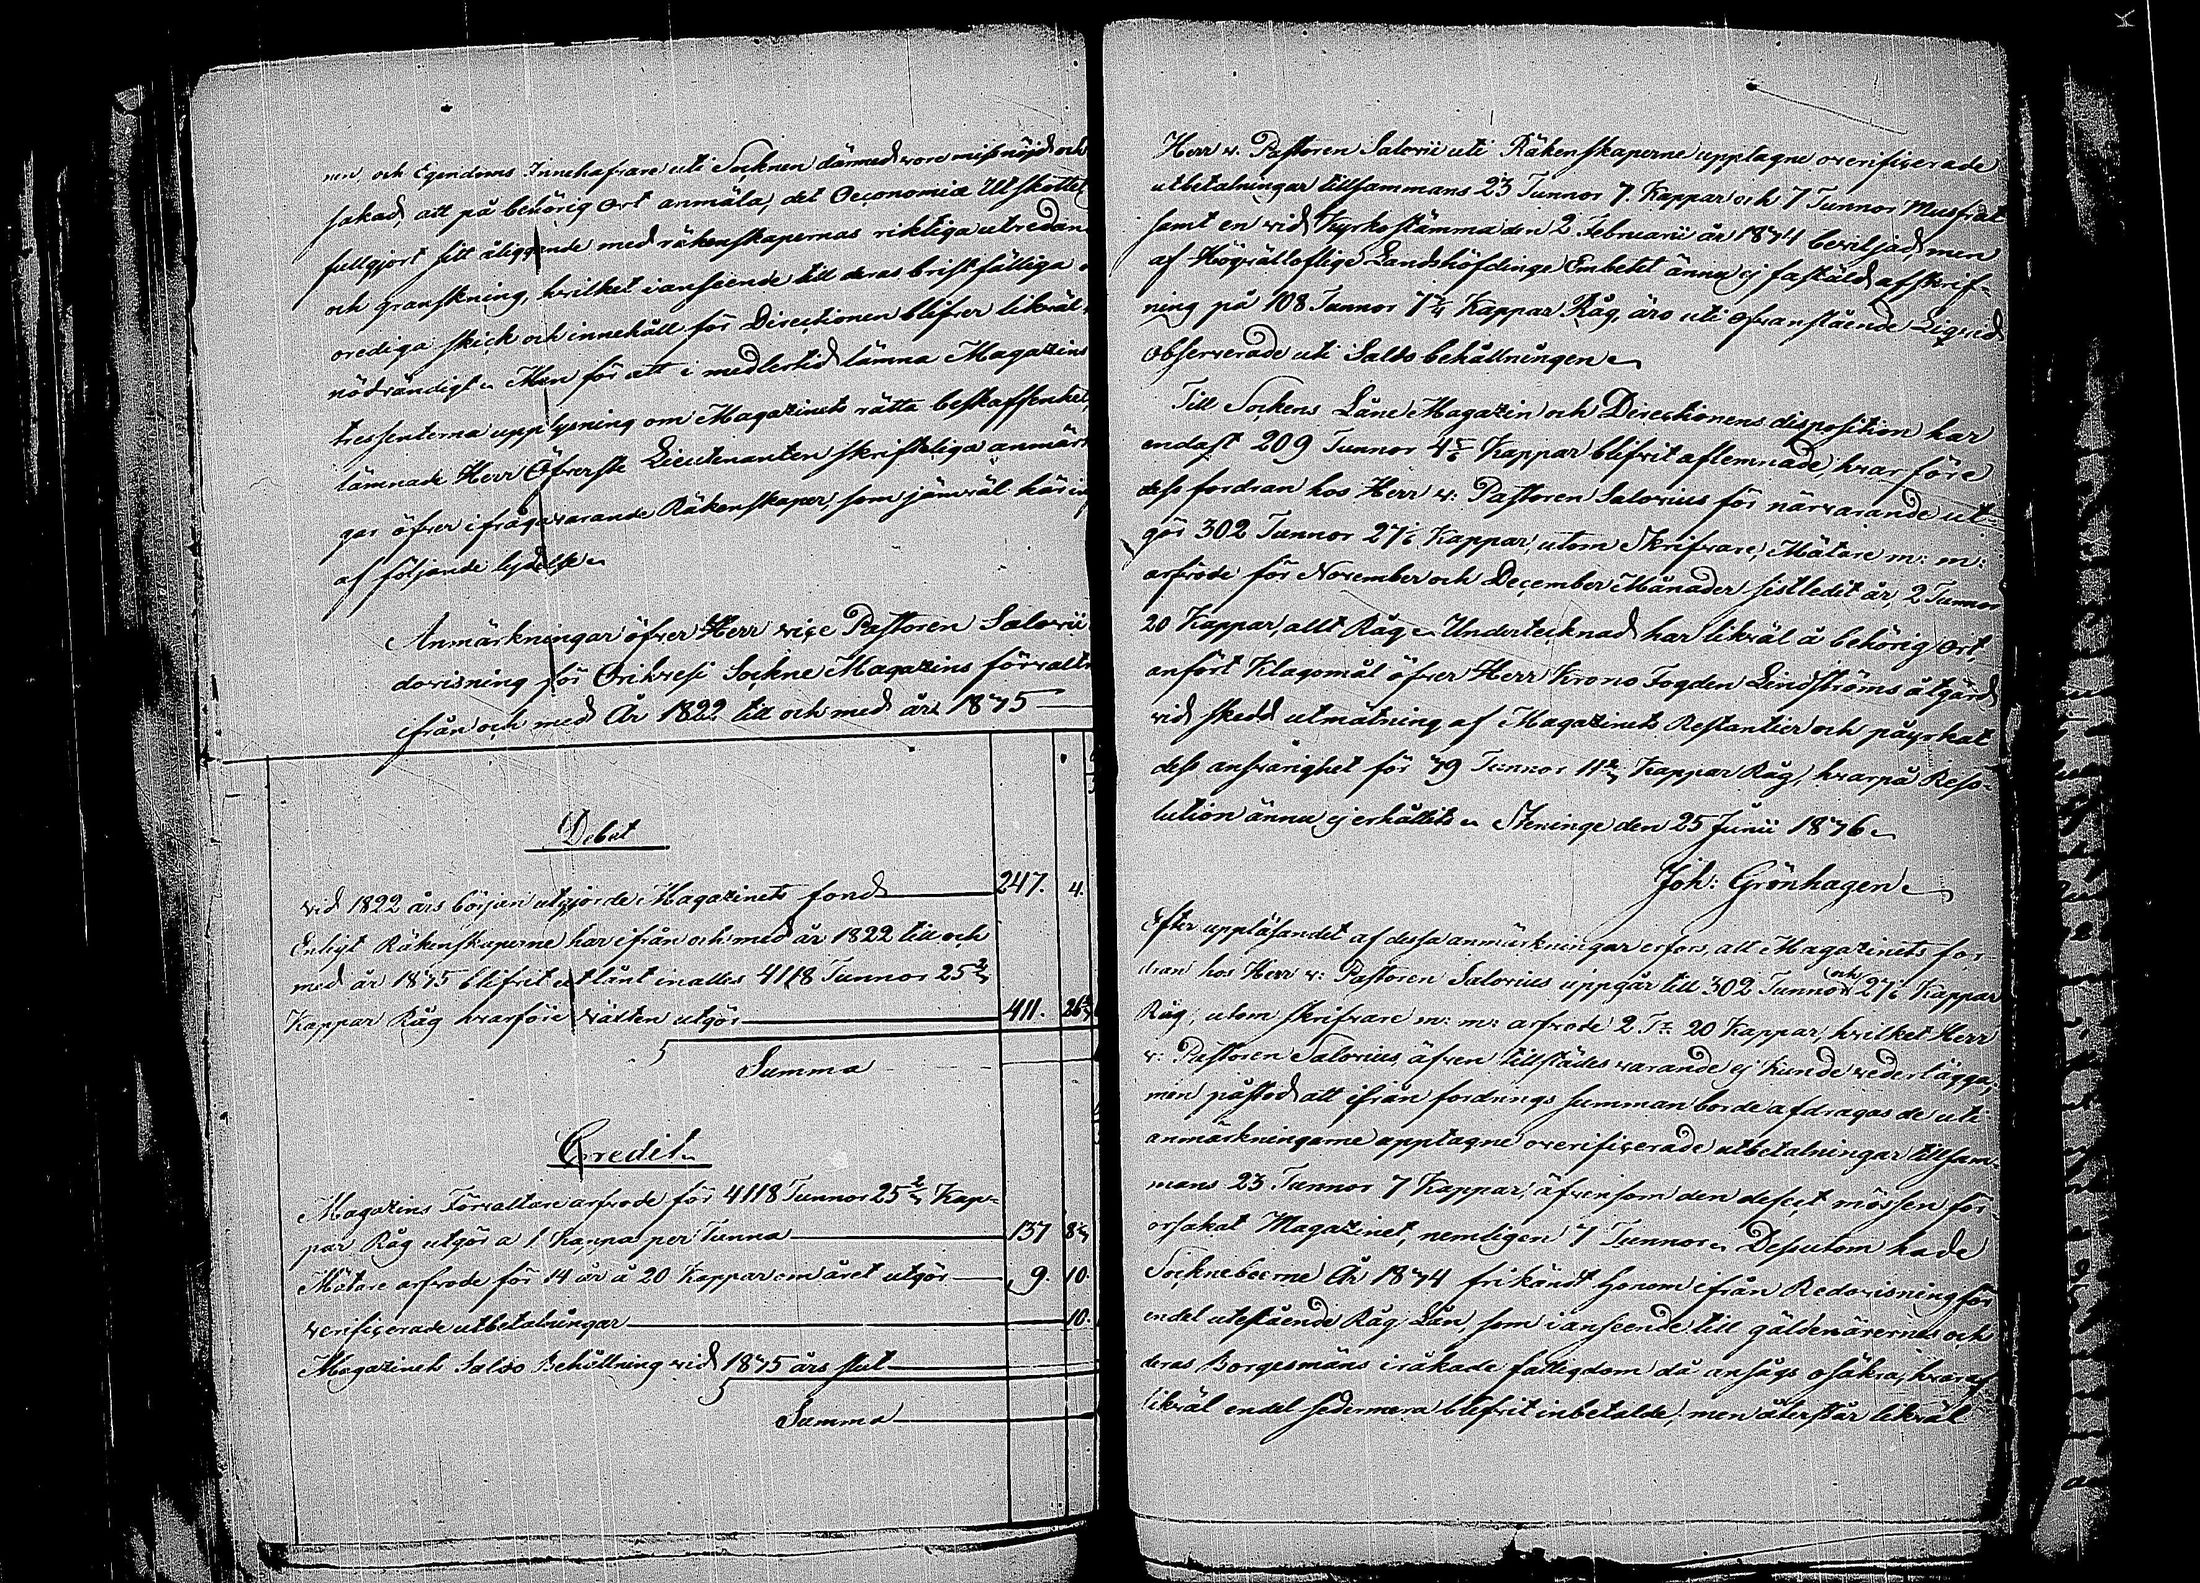 nen, och Egendoms Innehafvare uti Socknen därmed vore missnöjd och
sakad, att på behörig ort anmäla, det Oeconomiæ Utskottet
fullgjort sitt åliggande med räkenskapernas riktiga utredan
och granskning, hvilket i anseende till deras bristfälliga
orediga skick och innehåll för Directionen blifver likväl
nödvändigt. Men för att i medlertid lämna Magazins
tressenterna upplysning om Magazinets rätta beskaffenhet,
lämnade Herr Öfverste Lieutenanten skrifteliga anmärk
gar öfver ifrågavarande Räkenskaper, som jämväl här in
af följande lydelse.
Anmärkningar öfver Herr vice Pastoren Salovii
dovisning för Orihvesi Sockne Magazins förvaltn
ifrån och med År 1822 till och med år 1875
Debet
vid 1822 års början utgjorde Magazinets fond 247. 4.
Enligt Räkenskaperne har ifrån och med år 1822 till och
med år 1875 blifvit utlånt inalles 4118 Tunnor 25 2/7
Kappar Råg hvarföre växten utgör 411. 26
Summa
Credit
Magazins Förvaltare arfvode för 4118 Tunnor 25 2/7 Kap=
par Råg utgör a 1 Kappa per Tunna 137 8
Mätare arfvode för 14 år à 20 Kappar om året utgör 9. 10.
verificerade utbetalningar 10.
Magazinets Saldo Behållning vid 1875 års slut
Summa
Herr v. Pastoren Salovii uti Räkenskaperne upptagne overificerade
utbetalningar tillsammans 23 Tunnor 7. Kappar och 7 Tunnor Musfrät
samt en vid Kyrkostämma den 2 Februarii år 1874 beviljad, men
af Högvällofliga Landshöfdinge Embetet ännu ej faställd afskrif=
ning på 108 Tunnor 7 3/4 Kappar Råg, äro uti ofvanstående Liqvid
Observerade uti Saldo behållningen.
Till Sockens Låne Magazin och Directionens disposition har
endast 209 Tunnor 4 5/6 Kappar blifvit aflemnade, hvarföre
dess fordran hos Herr v: Pastoren Salovius för närvarande ut=
gör 302 Tunnor 27 1/6 Kappar, utom Skrifvare, Mätare m: m:
arfvode för November och December Månader sistledet år, 2 Tunnor
20 Kappar, allt Råg. Undertecknad har likväl å behörig ort,
anfört Klagomål öfver Herr Krono Fogden Lindströms åtgärd
vid skedd utmätning af Magazinets Restantier och påyrkat
dess ansvarighet för 79 Tunnor 11 Kappar Råg, hvarpå Reso=
lution ännu ej erhållits. Steninge den 25 Junii 1876.
Joh: Grönhagen.
Efter uppläsandet af dessa anmärkningar erfors, att Magazinets for=
dran hos Herr v: Pastoren Salovius uppgår till 302 Tunnor och 27 1/6 Kappar
Råg, utom skrifvare m: m: arfvode 2 Tr 20 Kappar, hvilket Herr
v: Pastoren Salovius, äfven tillstädes varande ej kunde vederlägga;
men påstod att ifrån fordrings summan borde afdragas de uti
anmärkningarne upptagne overificerade utbetalningar tillsam=
mans 23 Tunnor 7 Kappar, äfvensom den defect mössen för=
orsakat Magazinet, nemligen 7 Tunnor. Dessutom hade
Socknebocrne År 1874 frikändt honom ifrån Redovisning för
endel utestående Råg Lån, som i anseende till gäldenärernes och
deras Borgesmäns iråkade fattigdom då ansågs osäkra, hvaraf
likväl endel sedermera blifvit inbetalde, men återstår likväl